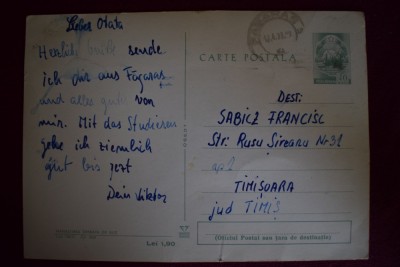 Lieber Otata
Herzliche Grüße sende
ich dir aus Făgăraș
und alles gute von
mir. Mit das Studieren
gehe ich ziemlich
gut bis jezt
Dein Viktor
CARTE POSTALA
DEST:
SABICZ FRANCISC
Str. Rusu Șireanu Nr 31
ap 2
TIMIȘOARA
jud TIMIȘ
(Oficiul Postal sau țara de destinație)
Lei 1,00